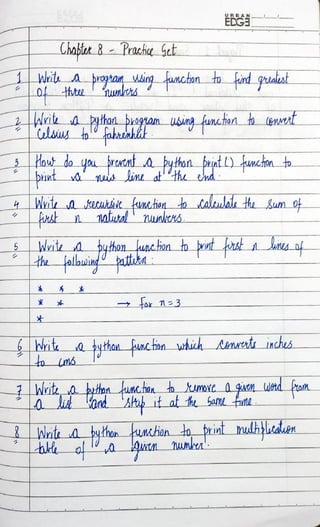 URBAN
EDGE
Chapter 8 - Practice Set
1 Write a program using function to find greatest
of three numbers
2 Write a python program using function to convert
Celsius to fahrenheit
3 How do you prevent a python print() function to
print a new line at the end.
4 Write a recursive function to calculate the sum of
first n natural numbers.
5 Write a python function to print first n lines of
the following pattern :
* * *
* * → for n=3
*
6 Write a python function which converts inches
to cms
7 Write a python function to remove a given word from
a list and strip it at the same time.
8 Write a python function to print multiplication
table of a given number.